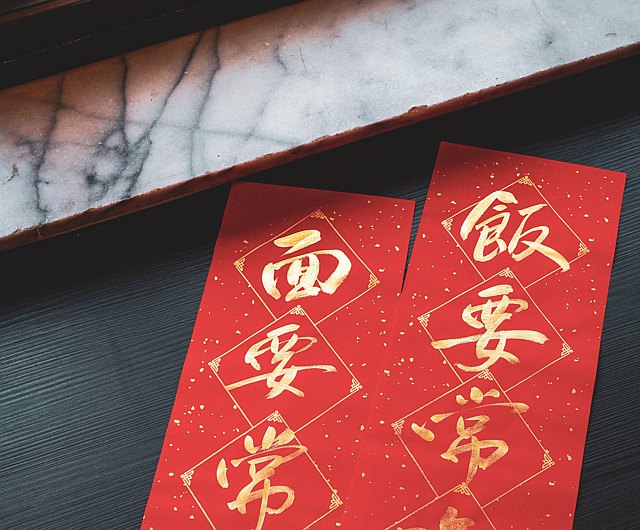 飯要常
面要常